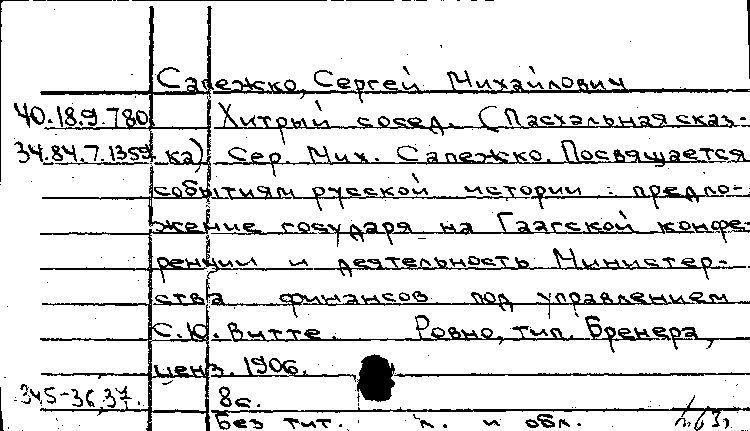 Сапежко, Сергей Михайлович
40.18.9.780 Хитрый сосед. (Пасхальная сказ-
34.84.7.1359 ка) Сер. Мих. Сапежко. Посвящается
событиям русской истории: предло-
жение государя на Гаагской конфе-
ренции и деятельность Министер-
ства финансов под управлением
С.Ю. Витте. Ровно, тип. Бренера,
ценз. 1906.
345-36,37. 8с.
Без тит. л. и обл.